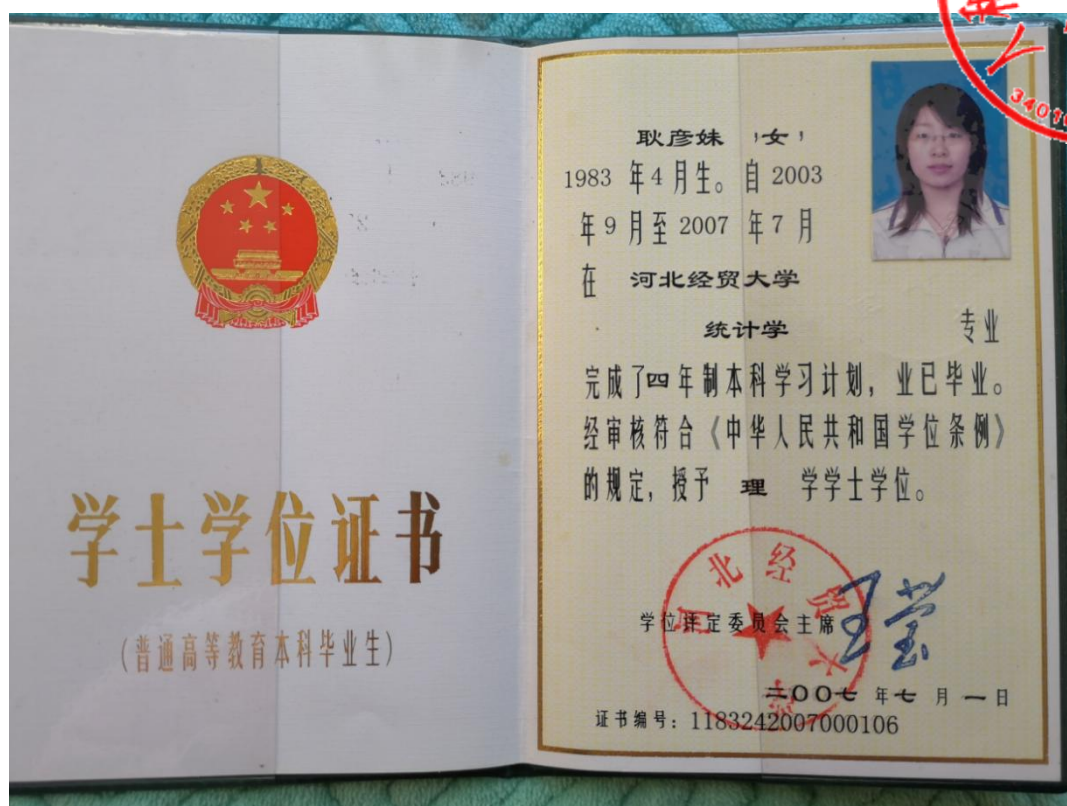 学士学位证书
(普通高等教育本科毕业生)
耿彦妹 ,女,
1983 年4月生。自 2003
年9月至 2007 年7月
在 河北经贸大学
统计学 专业
完成了四年制本科学习计划，业已毕业。
经审核符合《中华人民共和国学位条例》
的规定，授予 理 学学士学位。
河北经贸大学
学位评定委员会主席 王莹
二〇〇七 年 七 月 一 日
证书编号：1183242007000106